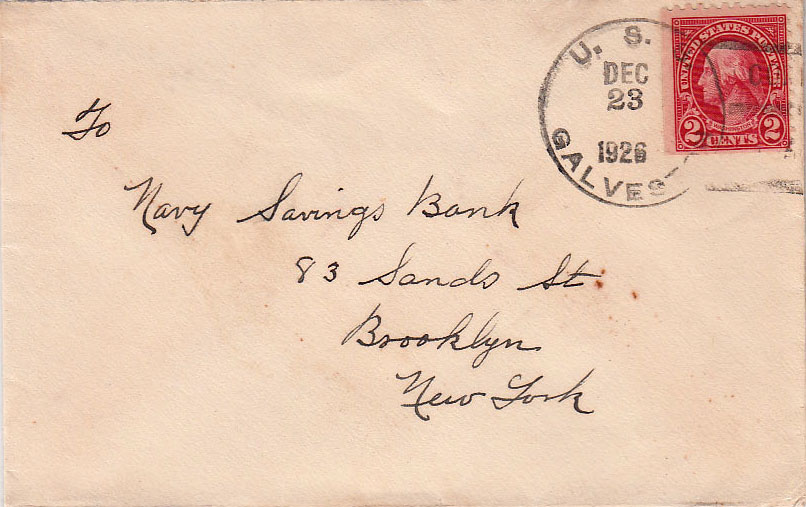 U. S.
DEC
23
1926
GALVES
UNITED STATES POSTAGE
WASHINGTON
2 CENTS 2
To
Navy Savings Bank
83 Sands St
Brooklyn
New York